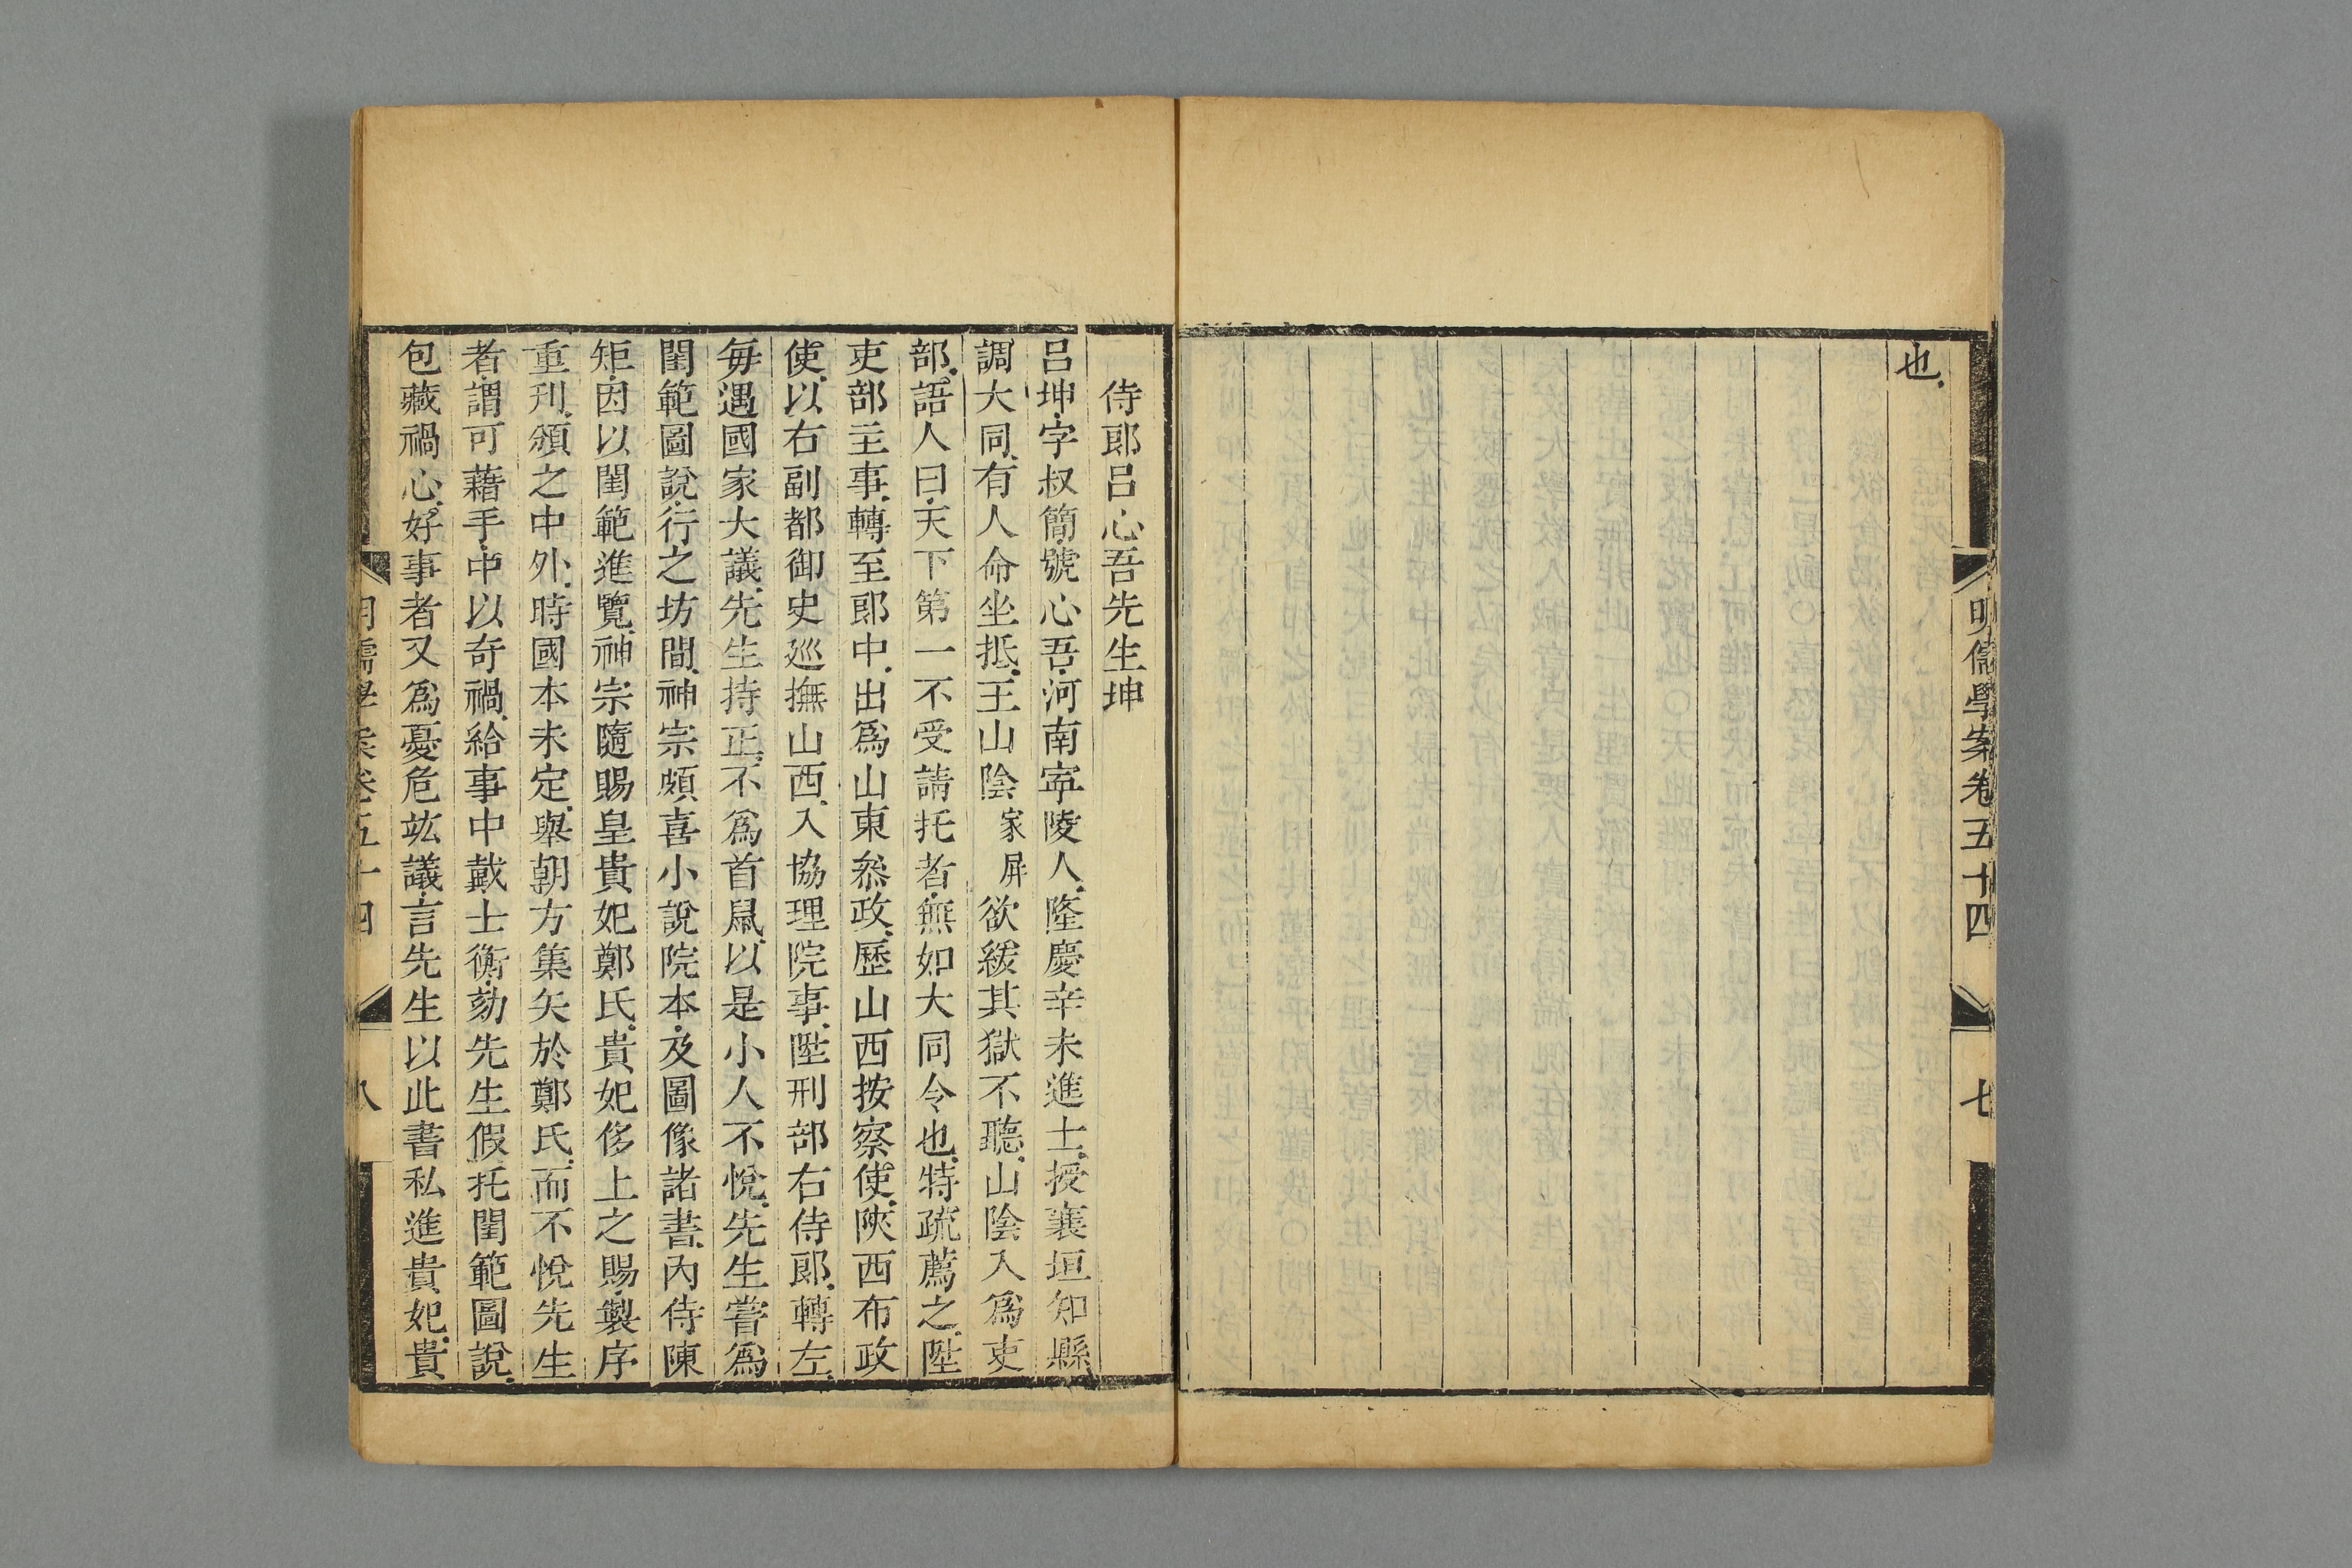 也
明儒學案卷五十四
七
侍郎呂心吾先生坤
呂坤字叔簡號心吾河南寧陵人隆慶辛未進士授襄垣知縣
調大同有人命坐抵王山陰家屏欲緩其獄不聽山陰入爲吏
部語人曰天下第一不受請托者無如大同令也特疏薦之陞
吏部主事轉至郎中出爲山東叅政歷山西按察使陝西布政
使以右副都御史巡撫山西入協理院事陞刑部右侍郎轉左
每遇國家大議先生持正不爲首鼠以是小人不悅先生嘗爲
閨範圖說行之坊間神宗頗喜小說院本及圖像諸書內侍陳
矩因以閨範進覽神宗隨賜皇貴妃鄭氏貴妃侈上之賜製序
重刊頒之中外時國本未定舉朝方集矢於鄭氏而不悅先生
者謂可藉手中以奇禍給事中戴士衡劾先生假托閨範圖說
包藏禍心好事者又爲憂危竑議言先生以此書私進貴妃貴
明儒學案卷五十四
八